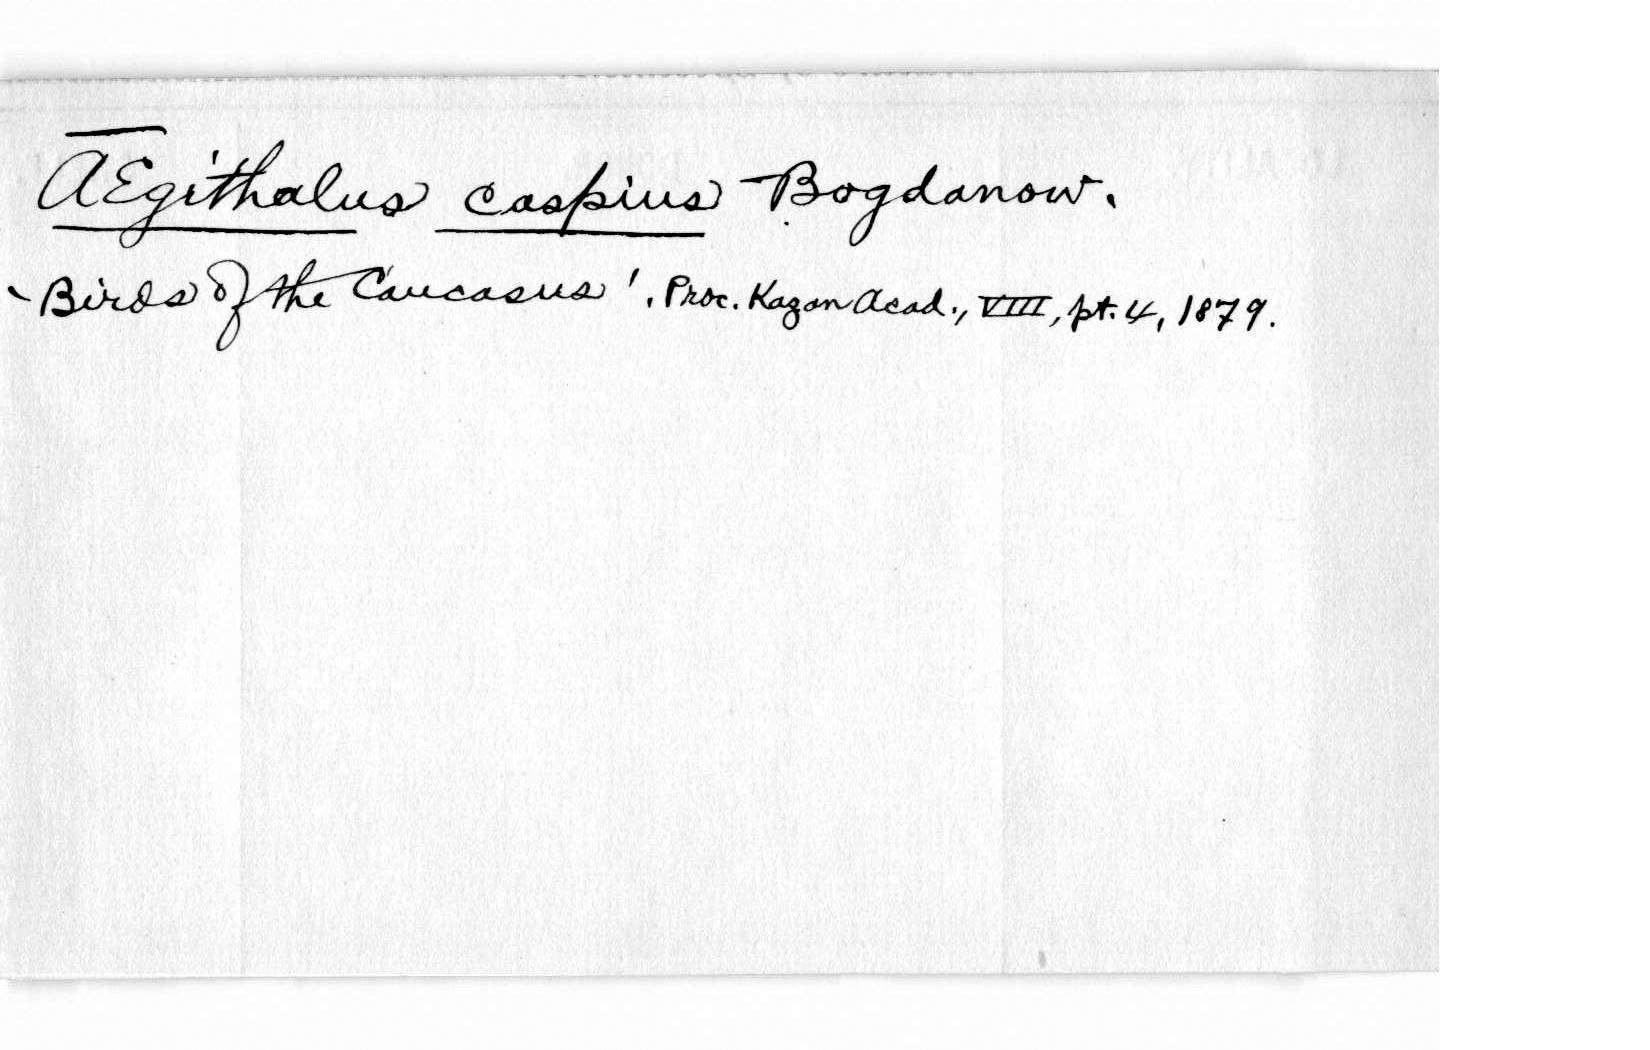 Ægithalus caspius Bogdanow.
'Birds of the Caucasus'. Proc. Kazan Acad., VIII, pt. 4, 1879.